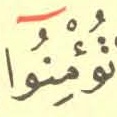 تُؤْمِنُوا